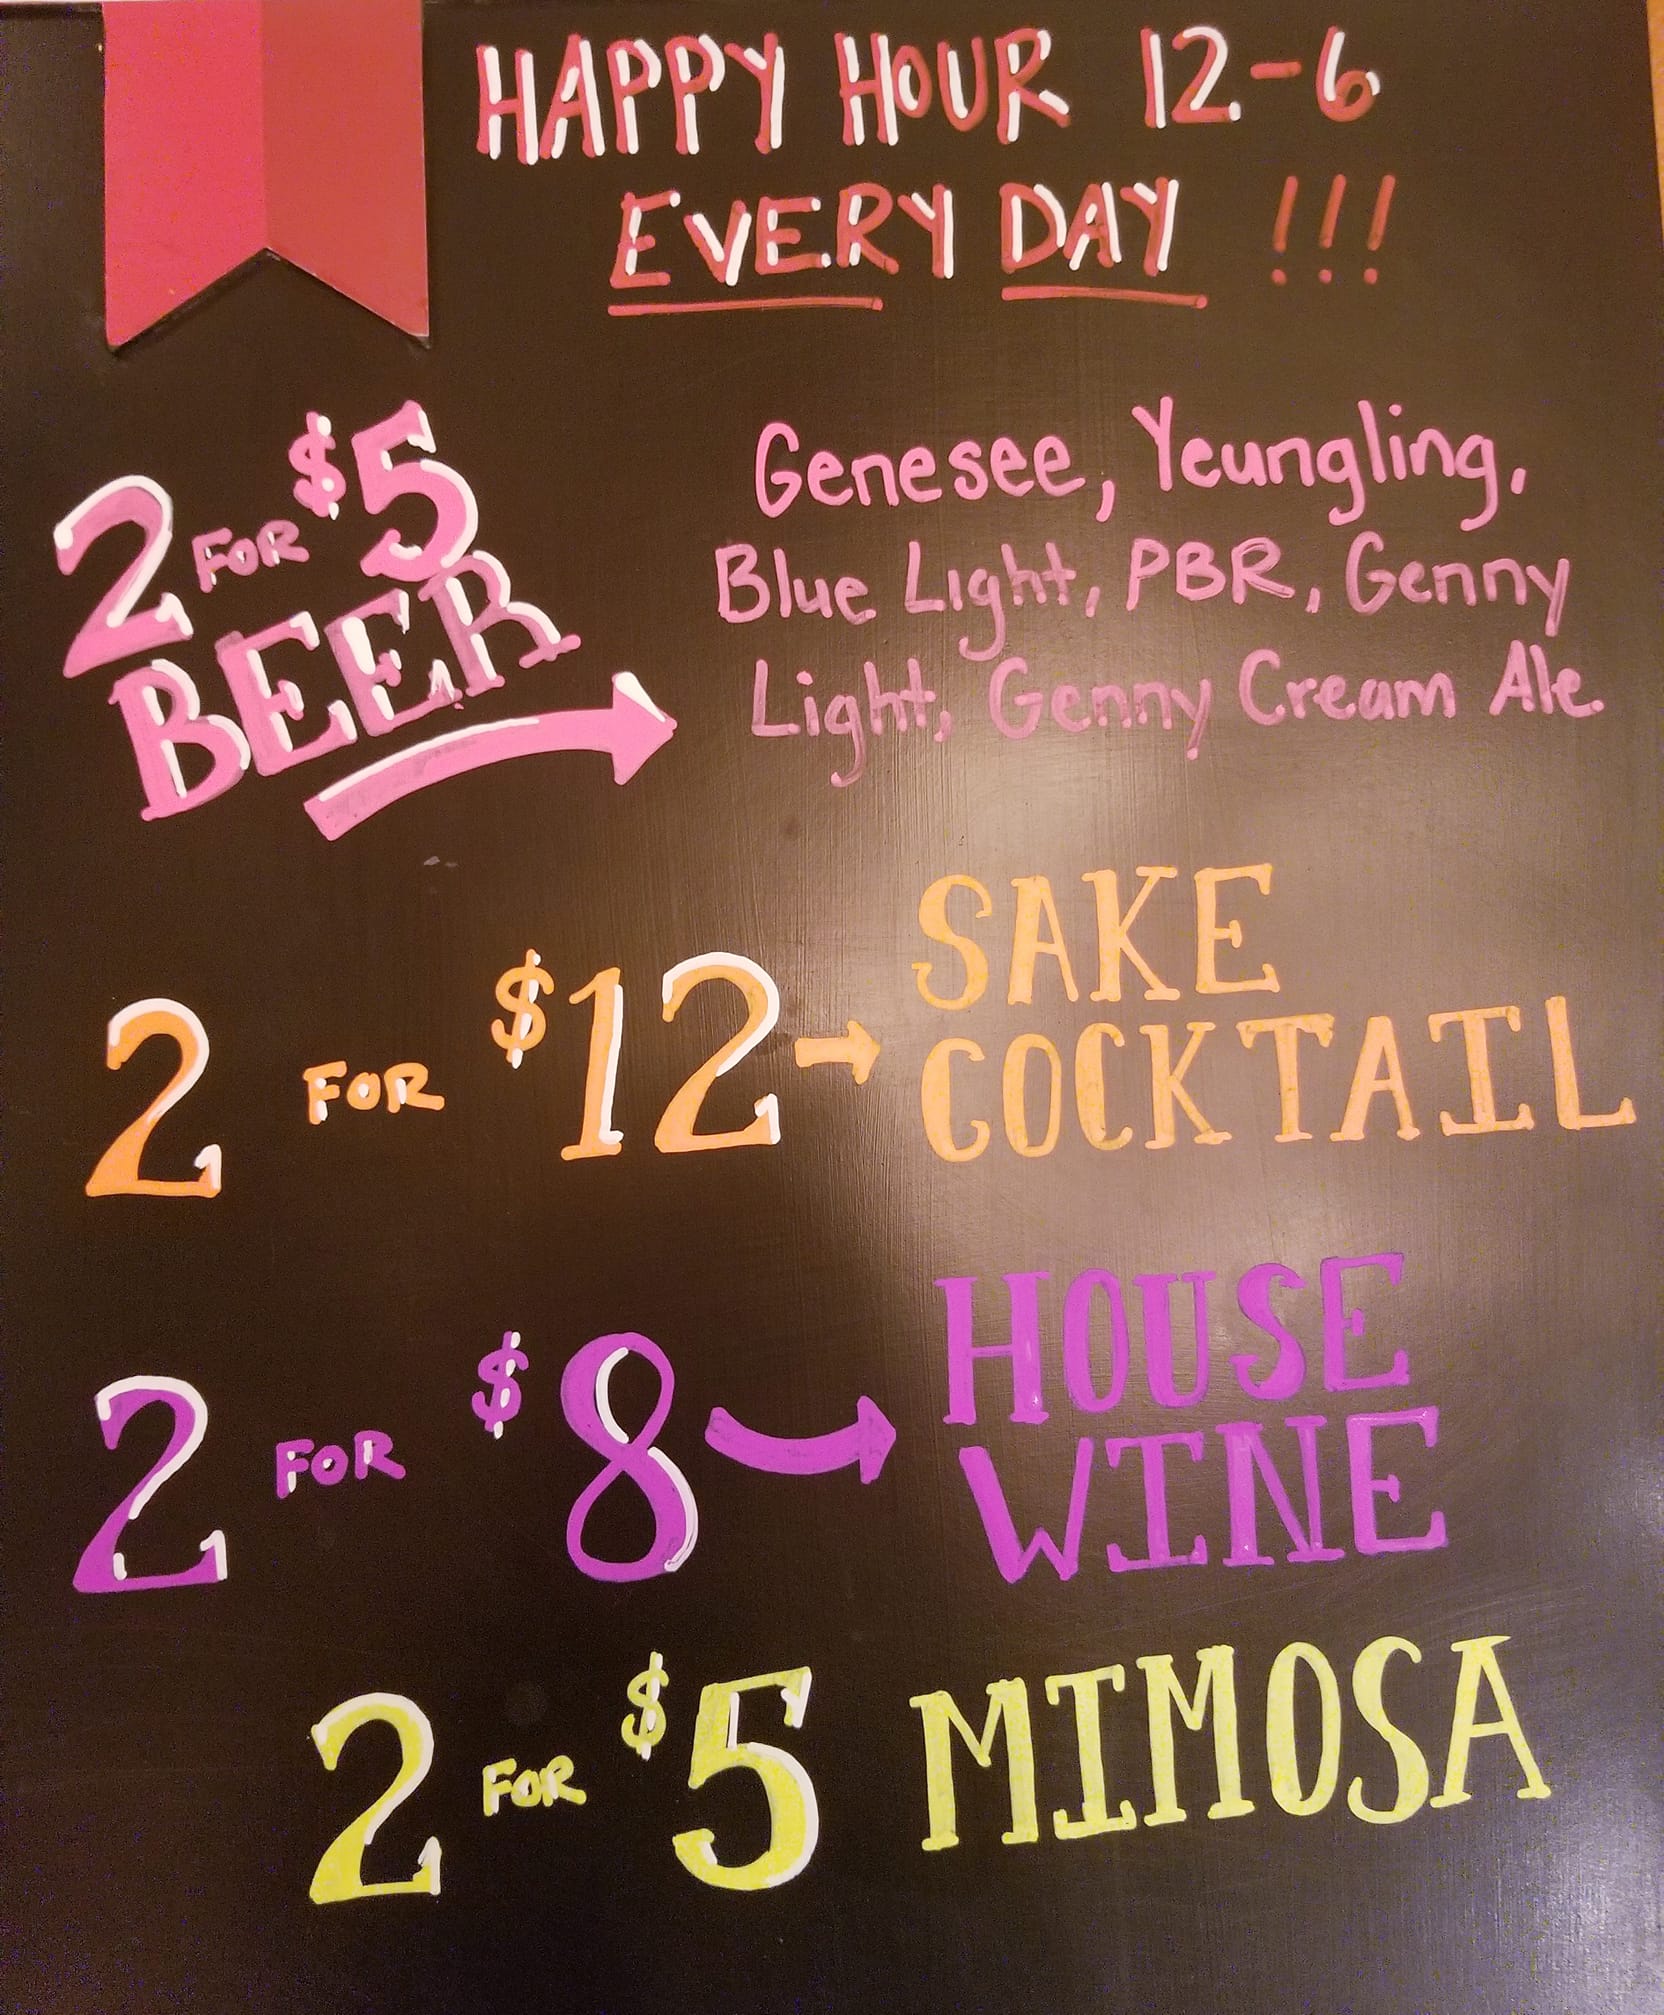 HAPPY HOUR 12-6
EVERY DAY !!!
2 FOR $5
BEER
Genesee, Yeungling,
Blue Light, PBR, Genny
Light, Genny Cream Ale.
2 FOR $12
SAKE
COCKTAIL
2 FOR $8
HOUSE
WINE
2 FOR $5 MIMOSA